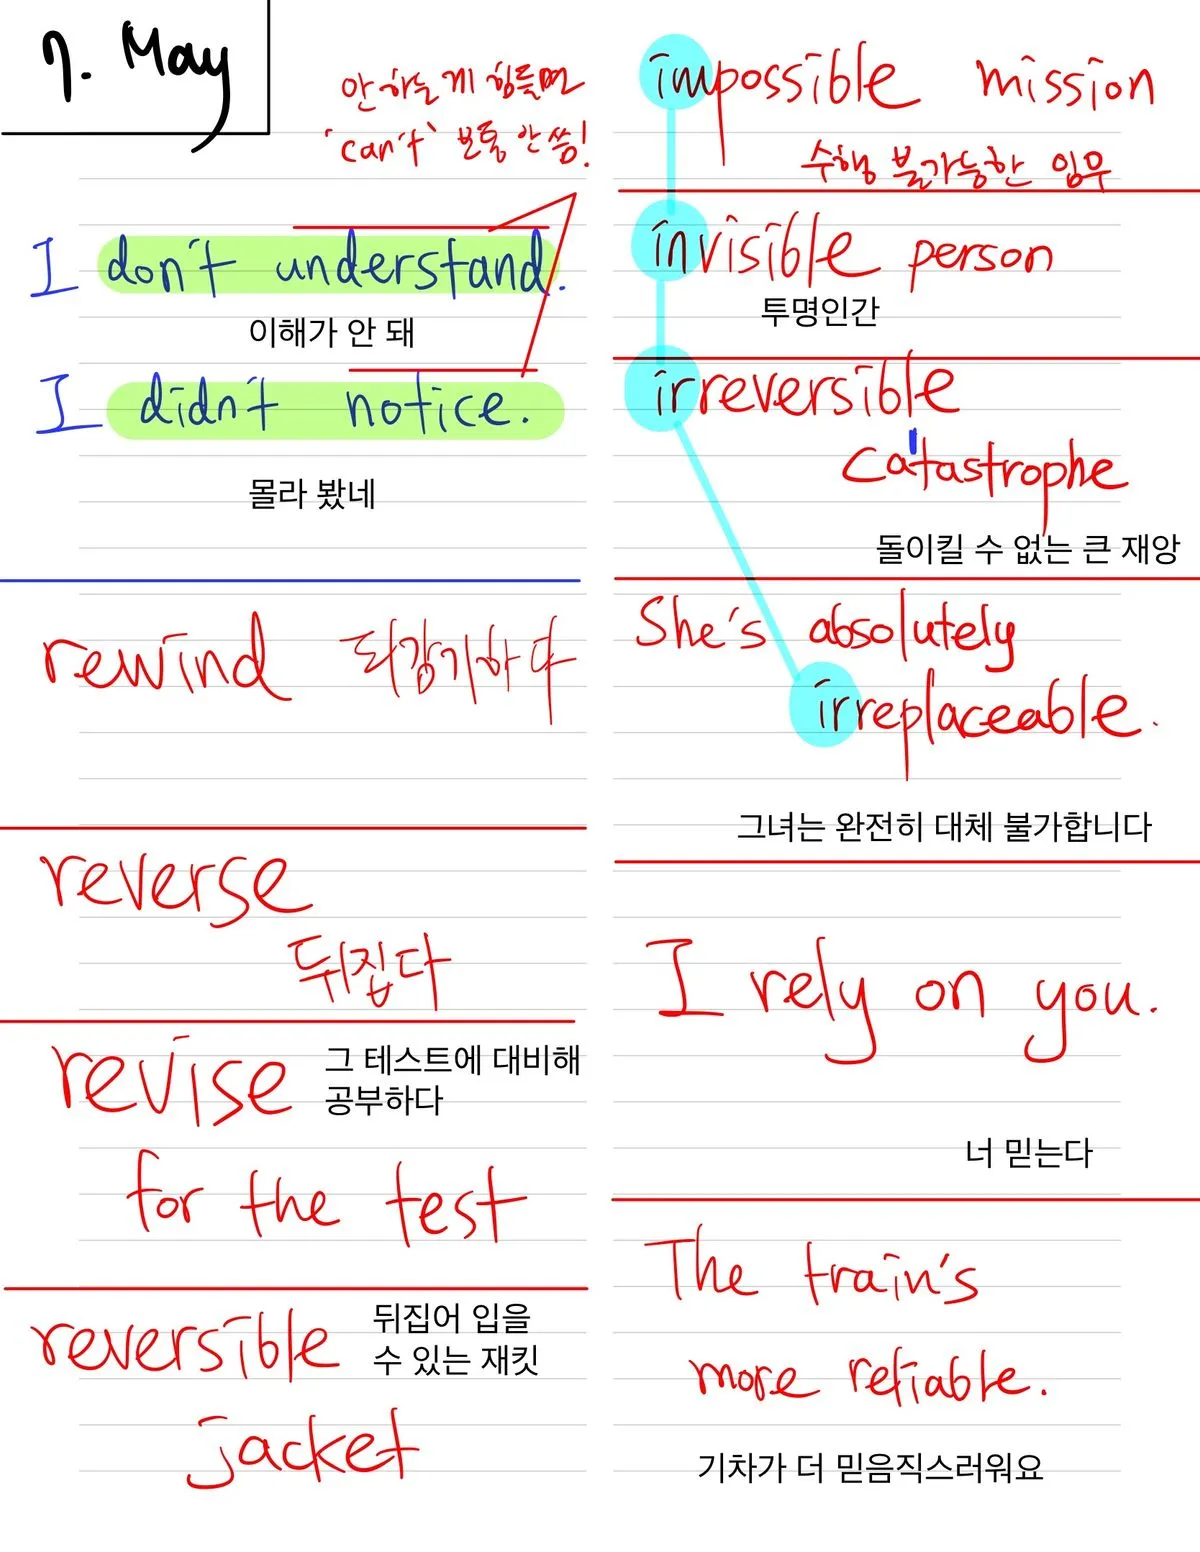 7. May
안 하는 게 힘들면
'can't' 보통 안 씀!
I don't understand.
이해가 안 돼
I didn't notice.
몰라 봤네
rewind 되감기하다
reverse
뒤집다
revise 그 테스트에 대비해
공부하다
for the test
reversible 뒤집어 입을
수 있는 재킷
jacket
impossible mission
수행 불가능한 임무
invisible person
투명인간
irreversible
catastrophe
돌이킬 수 없는 큰 재앙
She's absolutely
irreplaceable.
그녀는 완전히 대체 불가합니다
I rely on you.
너 믿는다
The train's
more reliable.
기차가 더 믿음직스러워요